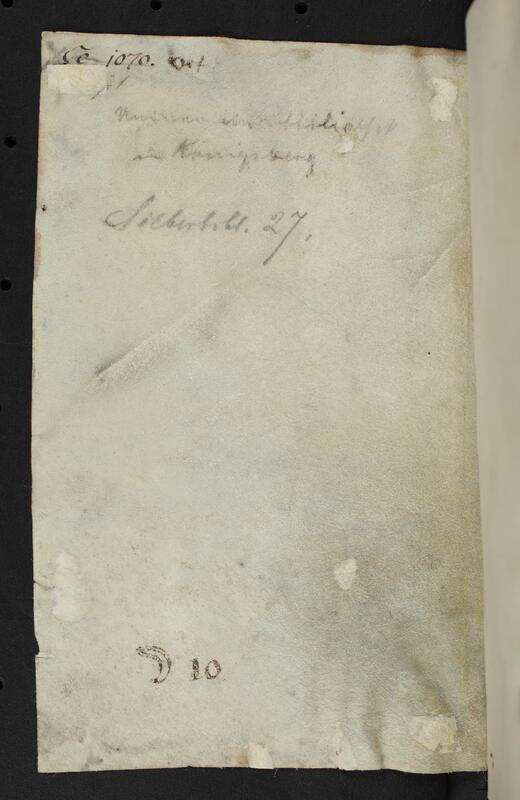 Ce 1070. Oct
Universitätsbibliothek
in Königsberg
Silberbibl. 27.
D 10